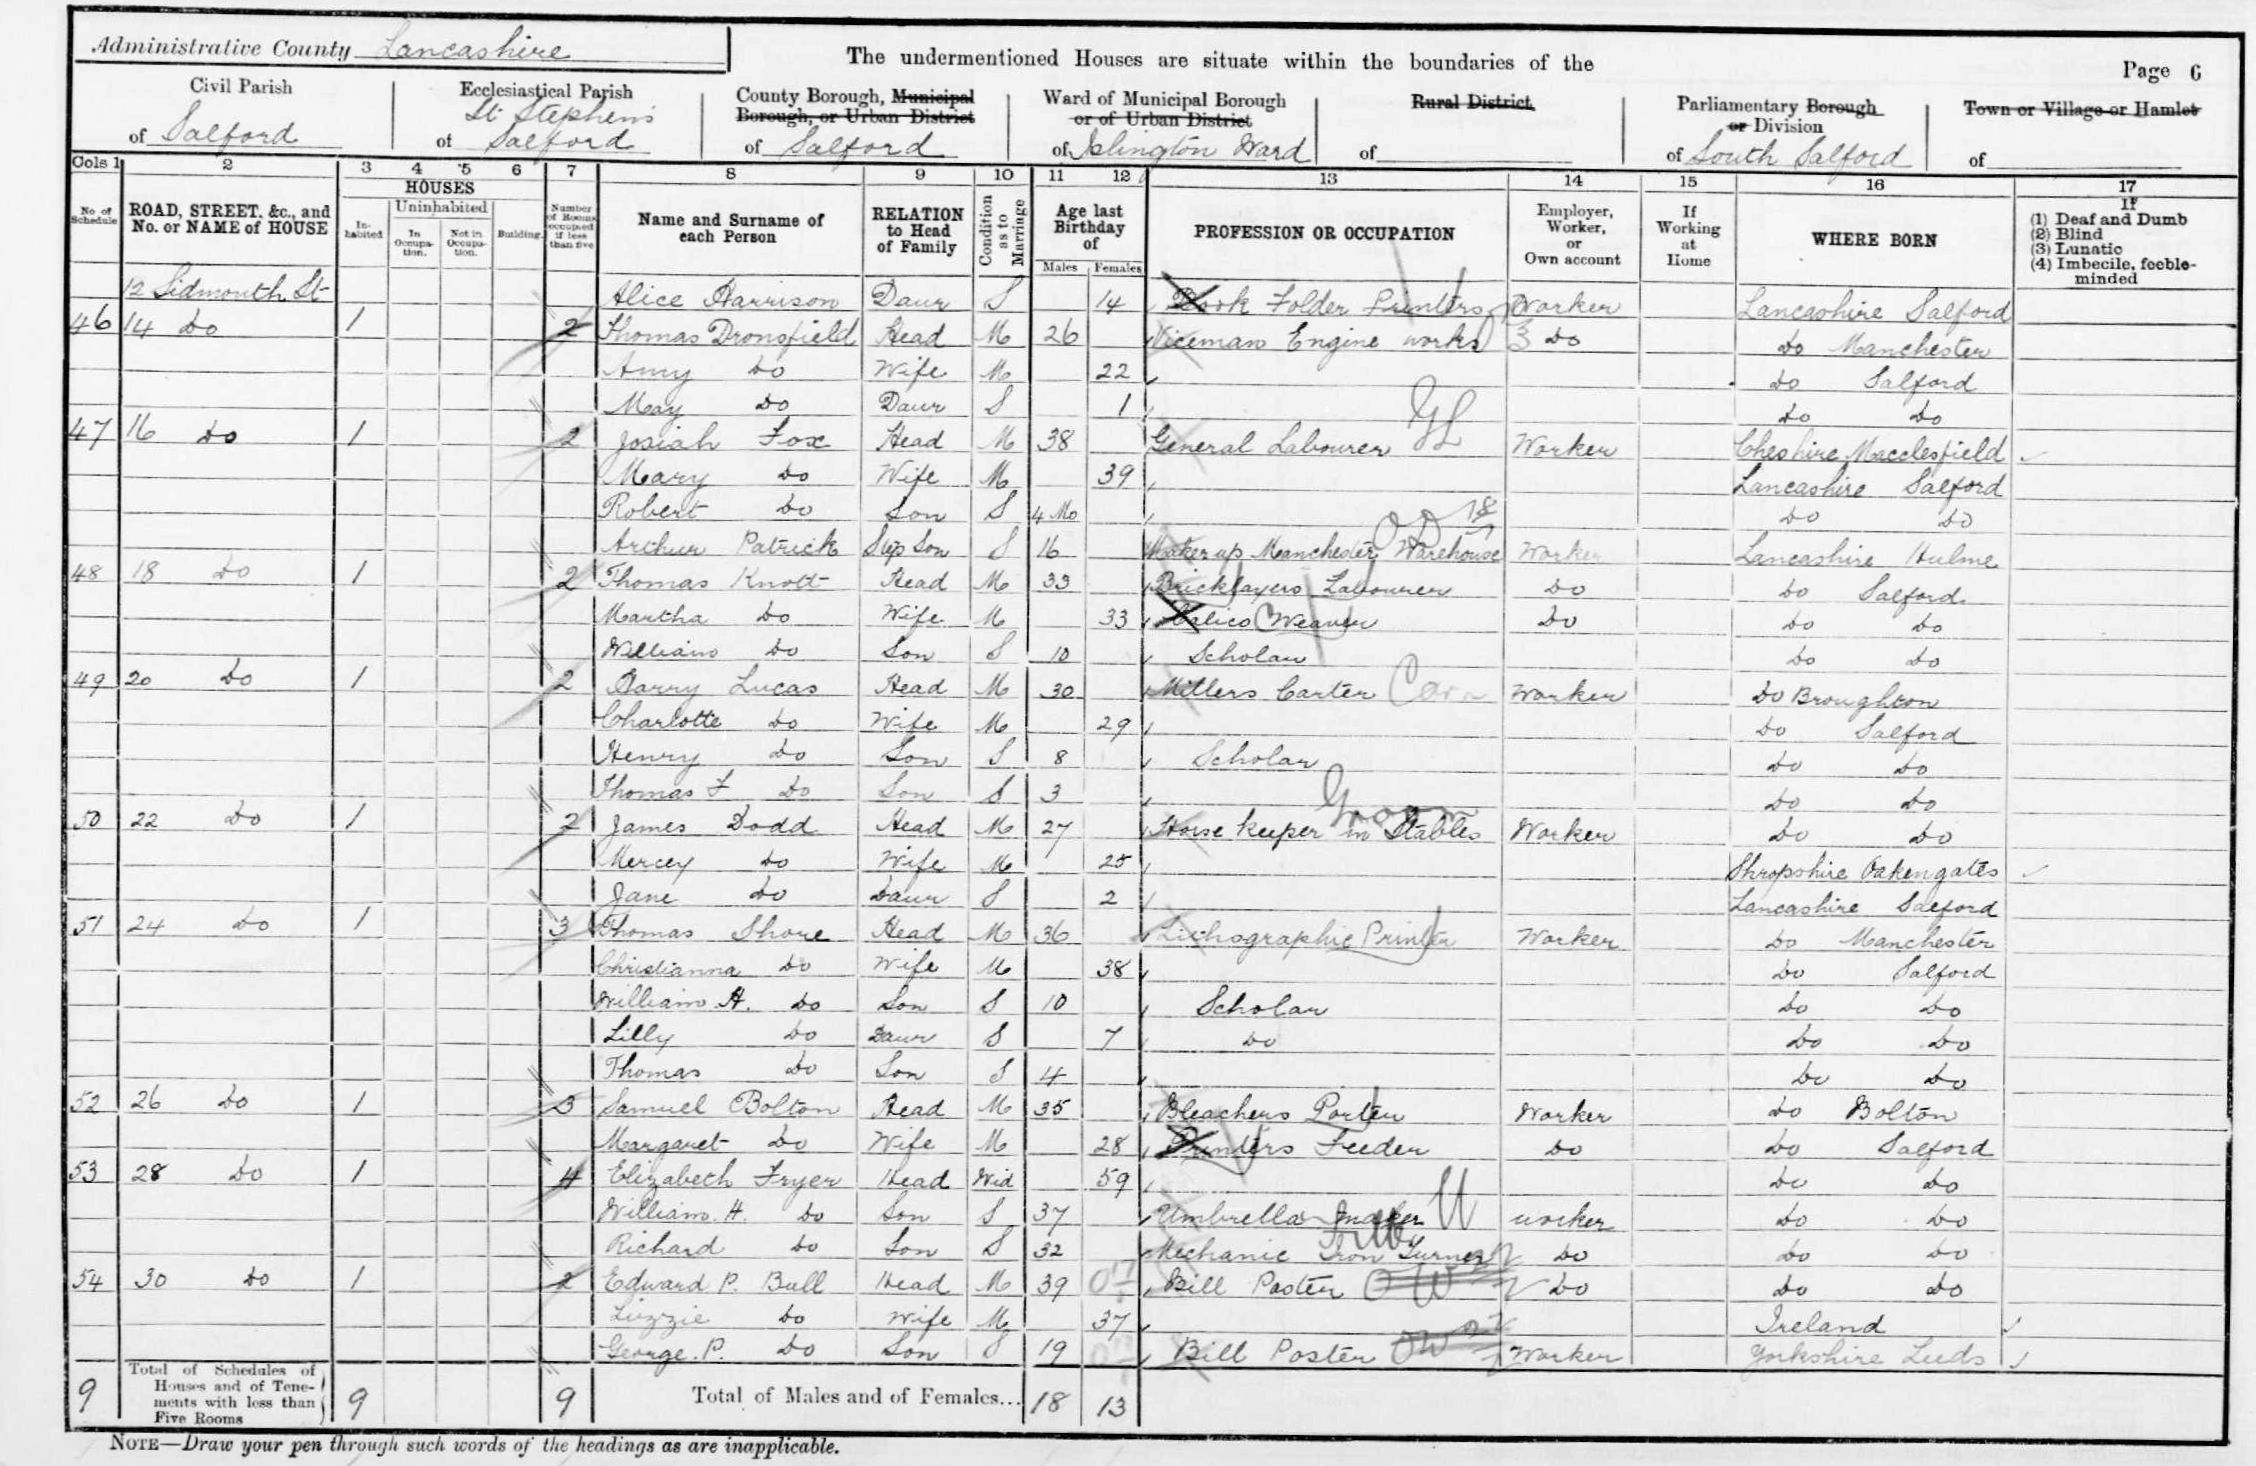 Administrative County Lancashire
The undermentioned Houses are situate within the boundaries of the
Page 6
Civil Parish of Salford
Ecclesiastical Parish of St Stephens Salford
County Borough, Municipal Borough, or Urban District of Salford
Ward of Municipal Borough or of Urban District of Islington Ward
Rural District of
Parliamentary Borough or Division of South Salford
Town or Village or Hamlet of
Cols 1 2 3 4 5 6 7 8 9 10 11 12 13 14 15 16 17
No of Schedule
ROAD, STREET, &c., and No. or NAME of HOUSE
HOUSES
In-habited
Uninhabited
In Occupa-tion.
Not in Occupa-tion.
Building.
Number of Rooms occupied if less than five
Name and Surname of each Person
RELATION to Head of Family
Condition as to Marriage
Age last Birthday of
Males Females
PROFESSION OR OCCUPATION
Employer, Worker, or Own account
If Working at Home
WHERE BORN
If
(1) Deaf and Dumb
(2) Blind
(3) Lunatic
(4) Imbecile, feeble-minded
12 Sidmouth St Alice Harrison Daur S 14 Book Folder Printers Worker Lancashire Salford
46 14 Do 1 2 Thomas Dronsfield Head M 26 Viceman Engine works Do Do Manchester
Amy Do Wife M 22 Do Salford
May Do Daur S 1 Do Do
47 16 Do 1 2 Josiah Fox Head M 38 General Labourer GL Worker Cheshire Macclesfield
Mary Do Wife M 39 Lancashire Salford
Robert Do Son S 4 Mo Do Do
Arthur Patrick Step Son S 16 Maker up Manchester Warehouse Worker Lancashire Hulme
48 18 Do 1 2 Thomas Knott Head M 33 Bricklayers Labourer Do Do Salford
Martha Do Wife M 33 Calico Weaver Do Do Do
William Do Son S 10 Scholar Do Do
49 20 Do 1 2 Harry Lucas Head M 30 Millers Carter Worker Do Broughton
Charlotte Do Wife M 29 Do Salford
Henry Do Son S 8 Scholar Do Do
Thomas F Do Son S 3 Do Do
50 22 Do 1 2 James Dodd Head M 27 Horse keeper in Stables Groom Worker Do Do
Mercey Do Wife M 25 Shropshire Oakengates
Jane Do Daur S 2 Lancashire Salford
51 24 Do 1 3 Thomas Shore Head M 36 Lithographic Printer Worker Do Manchester
Christianna Do Wife M 38 Do Salford
William H. Do Son S 10 Scholar Do Do
Lilly Do Daur S 7 Do Do Do
Thomas Do Son S 4 Do Do
52 26 Do 1 3 Samuel Bolton Head M 35 Bleachers Porter Worker Do Bolton
Margaret Do Wife M 28 Printers Feeder Do Do Salford
53 28 Do 1 4 Elizabeth Fryer Head Wid 59 Do Do
William. H. Do Son S 37 Umbrella Maker worker Do Do
Richard Do Son S 32 Mechanic Iron Turner Do Do Do
54 30 Do 1 2 Edward P. Bull Head M 39 Bill Poster Do Do Do
Lizzie Do Wife M 37 Ireland
George. P. Do Son S 19 Bill Poster Worker Yorkshire Leeds
9 Total of Schedules of Houses and of Tene-ments with less than Five Rooms 9 9 Total of Males and of Females... 18 13
NOTE—Draw your pen through such words of the headings as are inapplicable.